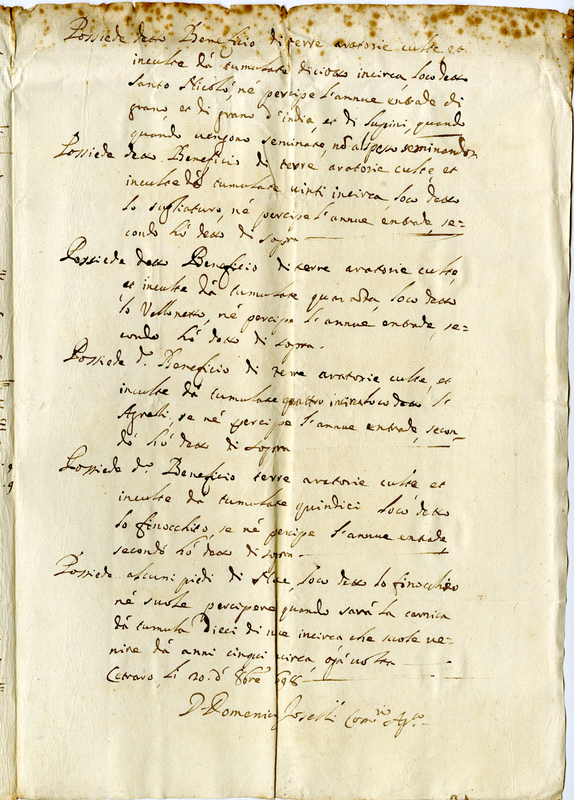 Possiede detto Beneficio di terre aratorie culte et
inculte da tumulate diciotto incirca, loco detto
Santo Nicolò, ne percipe l'annue entrade di
grano, et di grano d'india, et di lupini, quando
quando vengono seminate, nò spesso seminandosi
Possiede detto Beneficio di terre aratorie culte, et
inculte dà tumulate vinti incirca, loco detto
lo, né percipe l'annue entrade, se=
condo hò detto di sopra
Possiede detto Beneficio di terre aratorie culte,
et inculte dà tumulate, loco detto
lo Vallonetto, né percipe l'annue entrade, se=
condo hò detto di sopra.
Possiede d.º Beneficio di terre aratorie culte, et
inculte dà tumulate quattro incirca loco detto l'
Agrelli, se né percipe l'annue entrade, secon=
dò hò detto di sopra
Possiede d.º Beneficio terre aratorie culte et
inculte dà tumulate quindici loco detto
lo finocchito, se né percipe l'annue entrade
secondò hò detto di sopra.
Possiede alcuni piedi di, loco detto lo finocchito
né suole percipere quando sarà la carrica
dà tumula Dieci di incirca che suole ve=
nire dà anni cinqui incirca, ogni volta
Cetraro, li 20 d' 8bre 698
D. Domenico